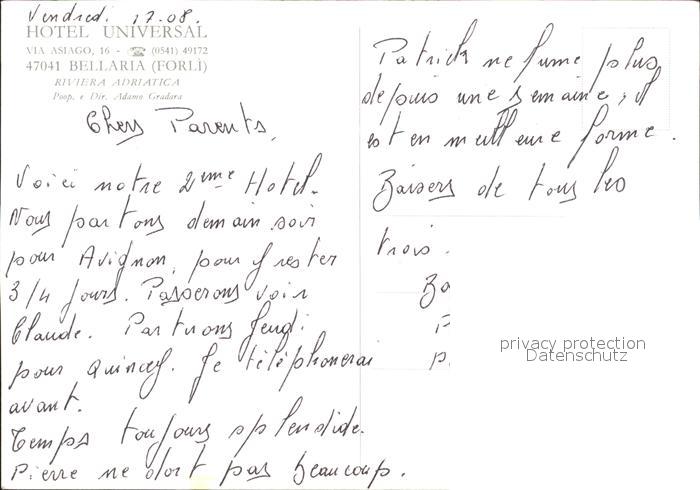 Vendredi 17.08.
HOTEL UNIVERSAL
VIA ASIAGO, 16 - ☎ (0541) 49172
47041 BELLARIA (FORLÌ)
RIVIERA ADRIATICA
Prop. e Dir. Adamo Gradara
Chers Parents,
Voici notre 2ème Hotel.
Nous partons demain soir
pour Avignon, pour y rester
3/4 jours. Passerons voir
Claude. Partirons Jeudi
pour Quincey. Je téléphonerai
avant.
Temps toujours splendide.
Pierre ne dort pas beaucoup.
Patrick ne fume plus
depuis une semaine ; il
est en meilleure forme.
Baisers de tous les
trois.
Ba
P
P.
privacy protection
Datenschutz